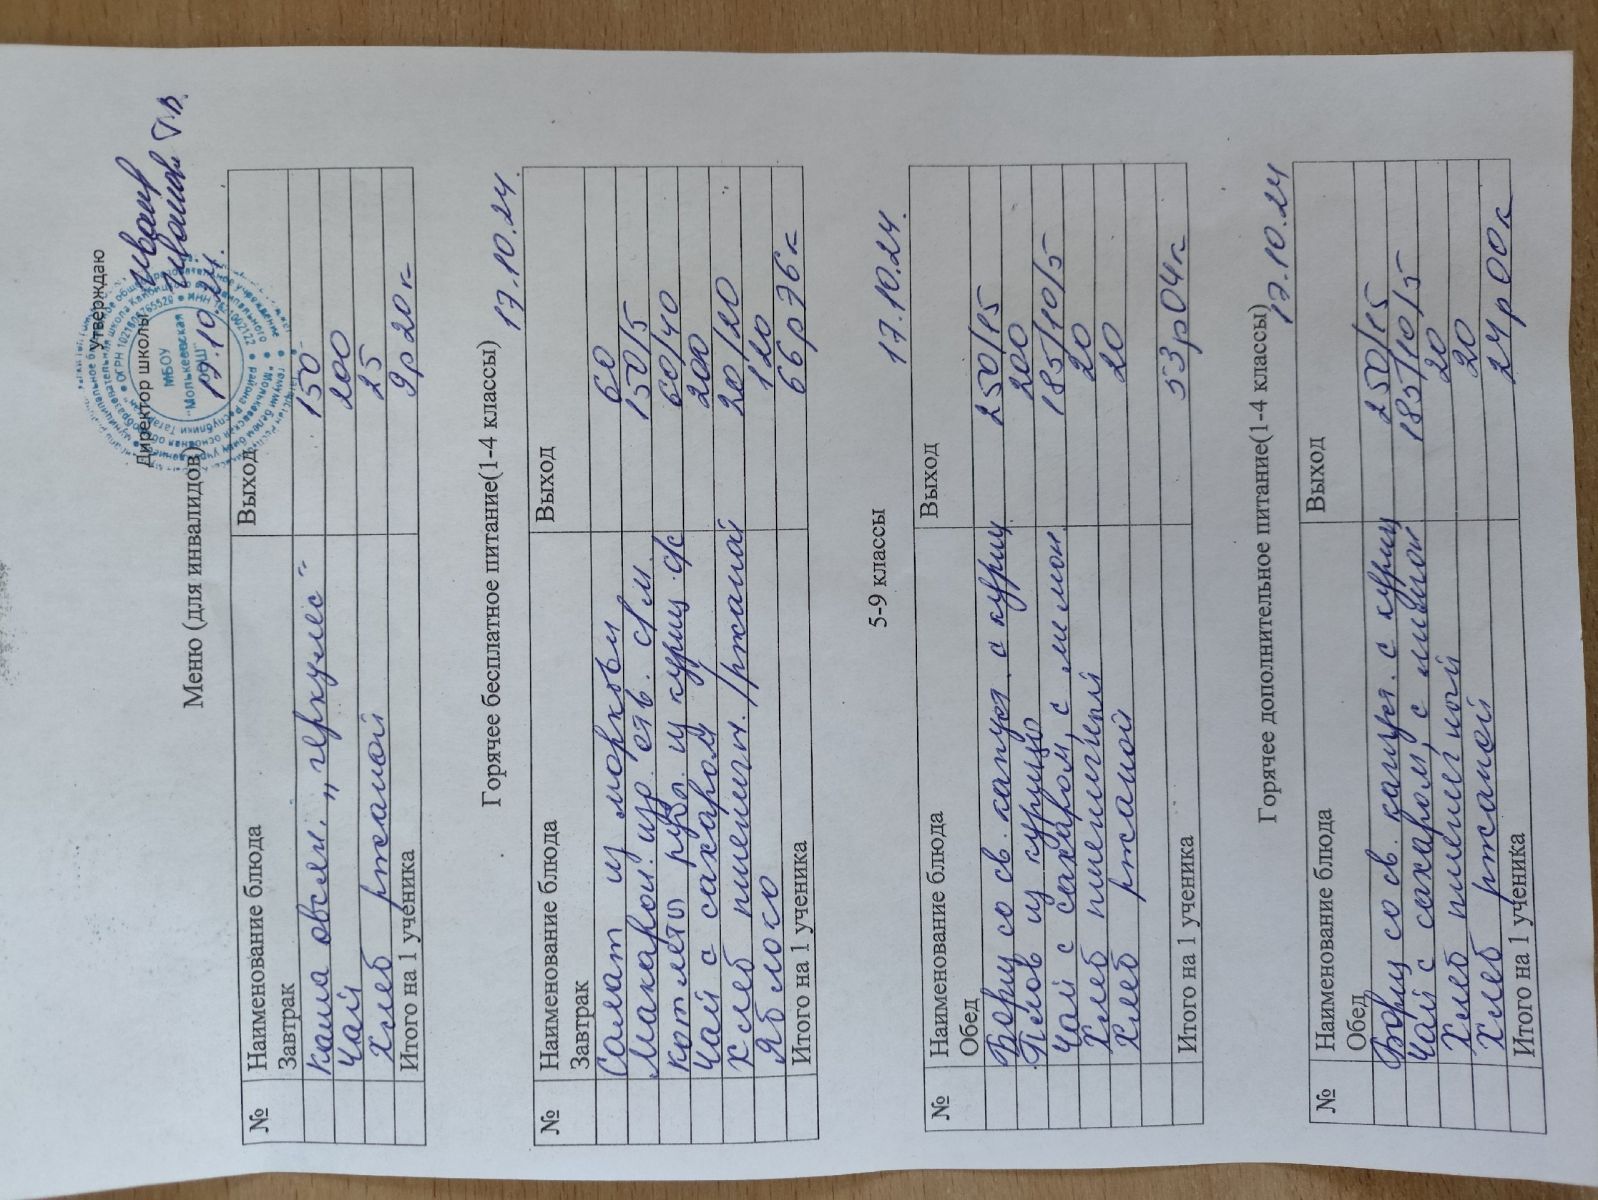 Утверждаю
Директор школы
17.10.24.
МБОУ
"Молькеевская
ООШ"
Меню (для инвалидов)
№ Наименование блюда Выход
Завтрак
Каша овсян. „геркулес" 150
Чай 200
Хлеб ржаной 25
Итого на 1 ученика 9р20к
Горячее бесплатное питание(1-4 классы) 17.10.24
№ Наименование блюда Выход
Завтрак
Салат из моркови 60
Макарон. изд. отв. с/м. 150/5
Котлеты рубл. из куриц. с/с 60/40
Чай с сахаром 200
Хлеб пшеничн./ржаной 20/20
Яблоко 120
Итого на 1 ученика 66р76к
5-9 классы 17.10.24.
№ Наименование блюда Выход
Обед
Борщ со св. капуст. с куриц 250/15
Плов из курицы 200
Чай с сахаром, с лимон. 185/10/5
Хлеб пшеничный 20
Хлеб ржаной 20
Итого на 1 ученика 53р04к
Горячее дополнительное питание(1-4 классы) 17.10.24
№ Наименование блюда Выход
Обед
Борщ со св. капуст. с куриц 250/15
Чай с сахаром, с лимон 185/10/5
Хлеб пшеничной 20
Хлеб ржаной 20
Итого на 1 ученика 24р00к